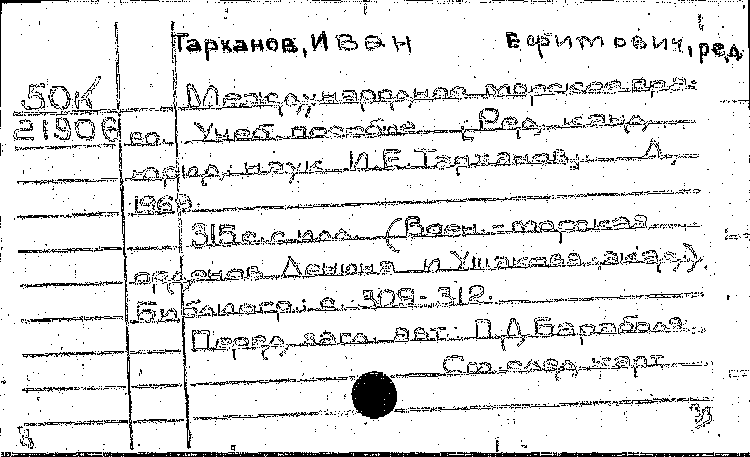 Тарханов, Иван Ефимович, ред.
50К Международное морское пра-
21906 во. Учеб. пособие. [Ред. канд.
юрид. наук И.Е. Тарханов]. Л.,
1969.
315 с. с ил. (Воен.-морская
орденов Ленина и Ушакова акад.).
Библиогр.: с. 309-312.
Перед загл. авт.: П.Д. Бараболя
См. след. карт.